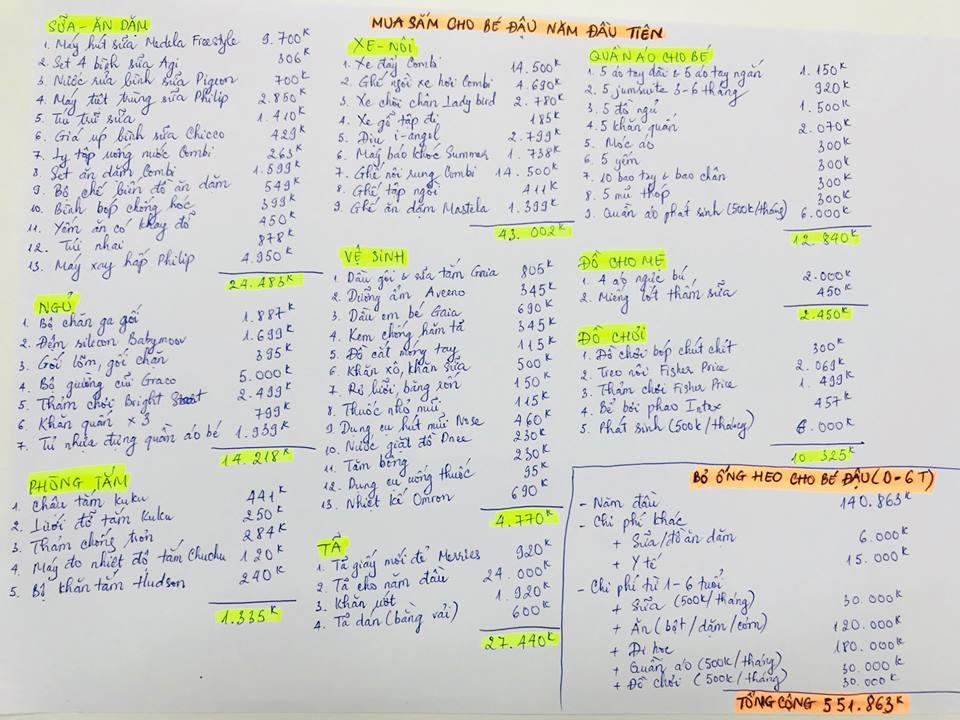 MUA SẮM CHO BÉ ĐẬU NĂM ĐẦU TIÊN
SỮA - ĂN DẶM
1. Máy hút sữa Medela Freestyle 9.700K
2. Set 4 bịch sữa Agi 306K
3. Nước rửa bình sữa Pigeon 700K
4. Máy tiệt trùng sữa Philip 2.850K
5. Túi trữ sữa 1.410K
6. Giá úp bình sữa Chicco 429K
7. Ly tập uống nước Combi 263K
8. Set ăn dặm Combi 1.599
9. Bộ chế biến đồ ăn dặm 549K
10. Bình bóp chống hóc 399K
11. Yếm ăn có khay đổ 450K
12. Túi nhai 878K
13. Máy xay hấp Philip 4.950K
24.483K
NGỦ
1. Bộ chăn ga gối 1.887K
2. Đệm silicon Babymoov 1.699K
3. Gối lõm, gối chặn 395K
4. Bộ giường cũi Graco 5.000K
5. Thảm chơi Bright Start 2.499K
6. Khăn quấn x 3 799K
7. Tủ nhựa đựng quần áo bé 1.939K
14.218K
PHÒNG TẮM
1. Chậu tắm Kuku 441K
2. Lưới đỡ tắm Kuku 250K
3. Thảm chống trơn 284K
4. Máy đo nhiệt độ tắm Chuchu 120K
5. Bộ khăn tắm Hudson 240K
1.335K
XE - NÔI
1. Xe đẩy Combi 14.500K
2. Ghế ngồi xe hơi Combi 4.690K
3. Xe chòi chân Lady bird 2.780K
4. Xe gỗ tập đi 185K
5. Địu i-angel 2.799K
6. Máy báo khóc Summer 1.738K
7. Ghế nôi rung Combi 14.500K
8. Ghế tập ngồi 411K
9. Ghế ăn dặm Mastela 1.399K
43.002K
VỆ SINH
1. Dầu gội & sữa tắm Gaia 805K
2. Dưỡng ẩm Aveeno 345K
3. Dầu em bé Gaia 690K
4. Kem chống hăm tã 345K
5. Đồ cắt móng tay 115K
6. Khăn xô, khăn sữa 500K
7. Rơ lưỡi, băng rốn 150K
8. Thuốc nhỏ mũi 115K
9. Dụng cụ hút mũi Nose 460K
10. Nước giặt đồ Dnee 230K
11. Tăm bông 230K
12. Dụng cụ uống thuốc 95K
13. Nhiệt kế Omron 690K
4.770K
TÃ
1. Tã giấy mới đẻ Merries 920K
2. Tã cho năm đầu 24.000K
3. Khăn ướt 1.920K
4. Tã dán (bằng vải) 600K
27.440K
QUẦN ÁO CHO BÉ
1. 5 áo tay dài & 5 áo tay ngắn 1.150K
2. 5 jumsuite 3-6 tháng 920K
3. 5 đồ ngủ 1.500K
4. 5 khăn quấn 2.070K
5. Móc áo 300K
6. 5 yếm 300K
7. 10 bao tay & bao chân 300K
8. 5 mũ thóp 300K
9. Quần áo phát sinh (500K/tháng) 6.000K
12.840K
ĐỒ CHO MẸ
1. 4 áo ngực bú 2.000K
2. Miếng lót thấm sữa 450K
2.450K
ĐỒ CHƠI
1. Đồ chơi bóp chút chít 300K
2. Treo nôi Fisher Price 2.069K
3. Thảm chơi Fisher Price 1.499
4. Bể bơi phao Intex 457K
5. Phát sinh (500K/tháng) 6.000K
10.325K
BỎ ỐNG HEO CHO BÉ ĐẬU (0-6T)
- Năm đầu 140.863K
- Chi phí khác
+ Sữa/đồ ăn dặm 6.000K
+ Y tế 15.000K
- Chi phí từ 1-6 tuổi
+ Sữa (500K/tháng) 30.000K
+ Ăn (bột/dặm/cơm) 120.000K
+ Đi học 180.000K
+ Quần áo (500K/tháng) 30.000K
+ Đồ chơi (500K/tháng) 30.000K
TỔNG CỘNG 551.863K